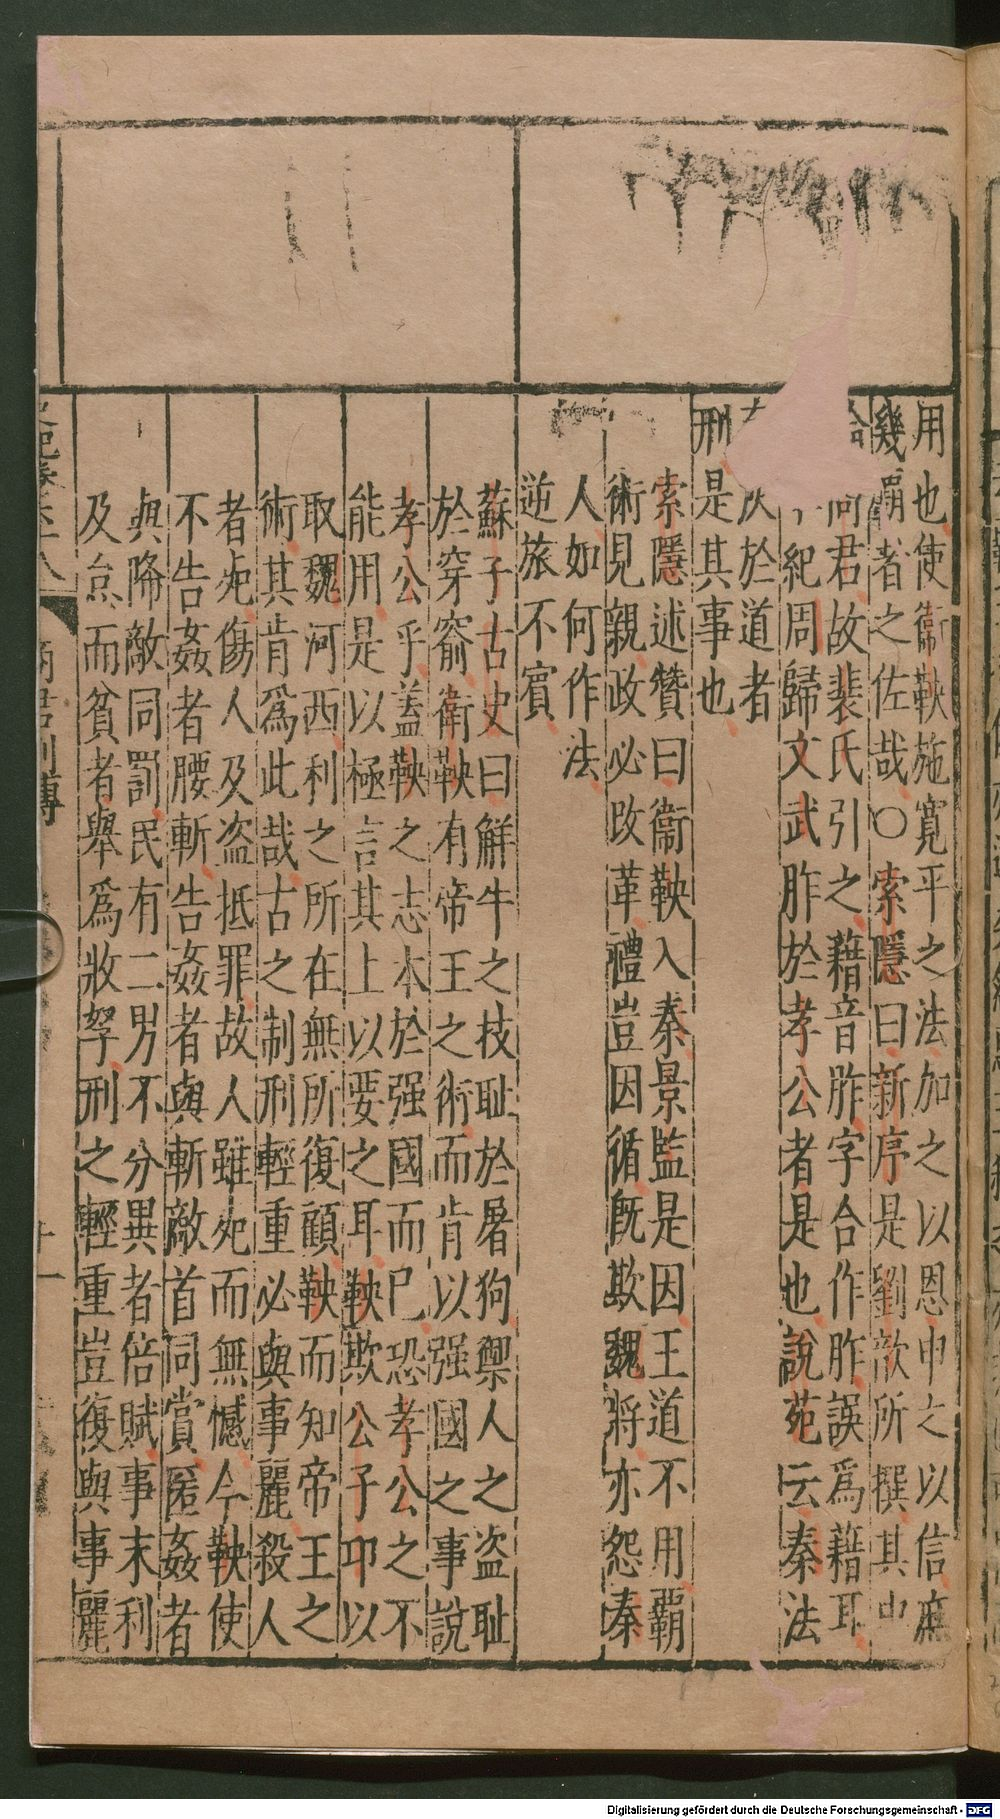 用也使衞鞅施寬平之法加之以恩申之以信庶
幾霸者之佐哉○索隱曰新序是劉歆所撰其中
商君故裴氏引之藉音胙字合作胙誤爲藉耳
紀周歸文武胙於孝公者是也說苑云秦法
於道者
刑是其事也
索隱述贊曰衞鞅入秦景監是因王道不用霸
術見親政必改革禮豈因循旣欺魏將亦怨秦
人如何作法
逆旅不賓
蘇子古史曰解牛之技耻於屠狗禦人之盗耻
於穿窬衛鞅有帝王之術而肯以强國之事說
孝公乎蓋鞅之志本於强國而已恐孝公之不
能用是以極言其上以要之耳鞅欺公子卬以
取魏河西利之所在無所復顧鞅而知帝王之
術其肯爲此哉古之制刑輕重必與事麗殺人
者死傷人及盗抵罪故人雖死而無憾今鞅使
不告姦者腰斬告姦者與斬敵首同賞匿姦者
與降敵同罰民有二男不分異者倍賦事末利
及怠而貧者舉爲收孥刑之輕重豈復與事麗
商君列傳
十一
Digitalisierung gefördert durch die Deutsche Forschungsgemeinschaft - DFG